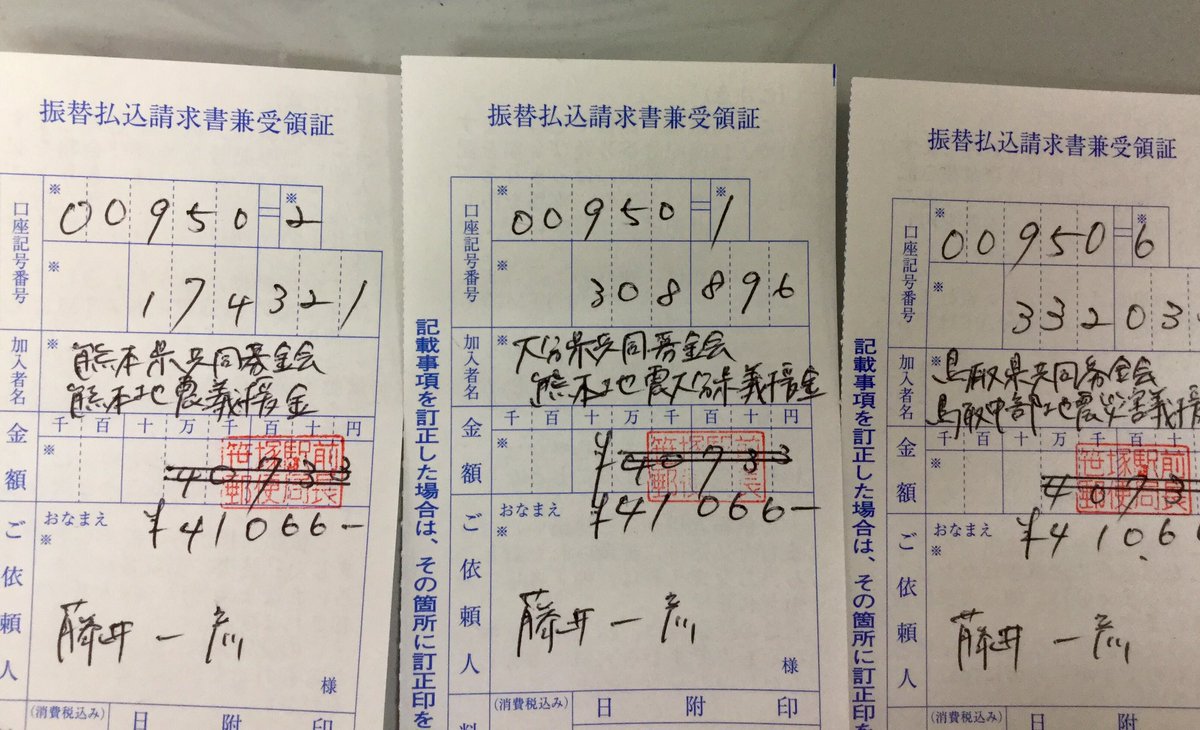 振替払込請求書兼受領証
口座記号番号
※ 00950=※2
※ 174321
加入者名
※ 熊本県共同募金会
熊本地震義援金
金額
千百十万千百十円
※ 40733
笹塚駅前
郵便局長
¥41066-
ご依頼人
おなまえ
※
藤井一彦
様
(消費税込み)
日附印
振替払込請求書兼受領証
口座記号番号
※ 00950=※1
※ 308896
加入者名
※ 大分県共同募金会
熊本地震大分県義援金
金額
千百十万千百十円
※ ¥40733
笹塚駅前
郵便局長
¥41066-
ご依頼人
おなまえ
※
藤井一彦
様
(消費税込み)
日附印
料
記載事項を訂正した場合は、その箇所に訂正印を
振替払込請求書兼受領証
口座記号番号
※ 00950=※6
※ 33203
加入者名
※ 鳥取県共同募金会
鳥取中部地震災害義援
金額
千百十万千百十
※ 4073
笹塚駅前
郵便局長
¥4106
ご依頼人
おなまえ
※
藤井一彦
(消費税込み)
日附
記載事項を訂正した場合は、その箇所に訂正印を